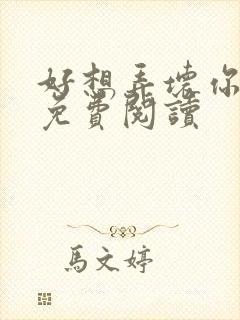 好想弄壞你
免費閱讀
馬文婷